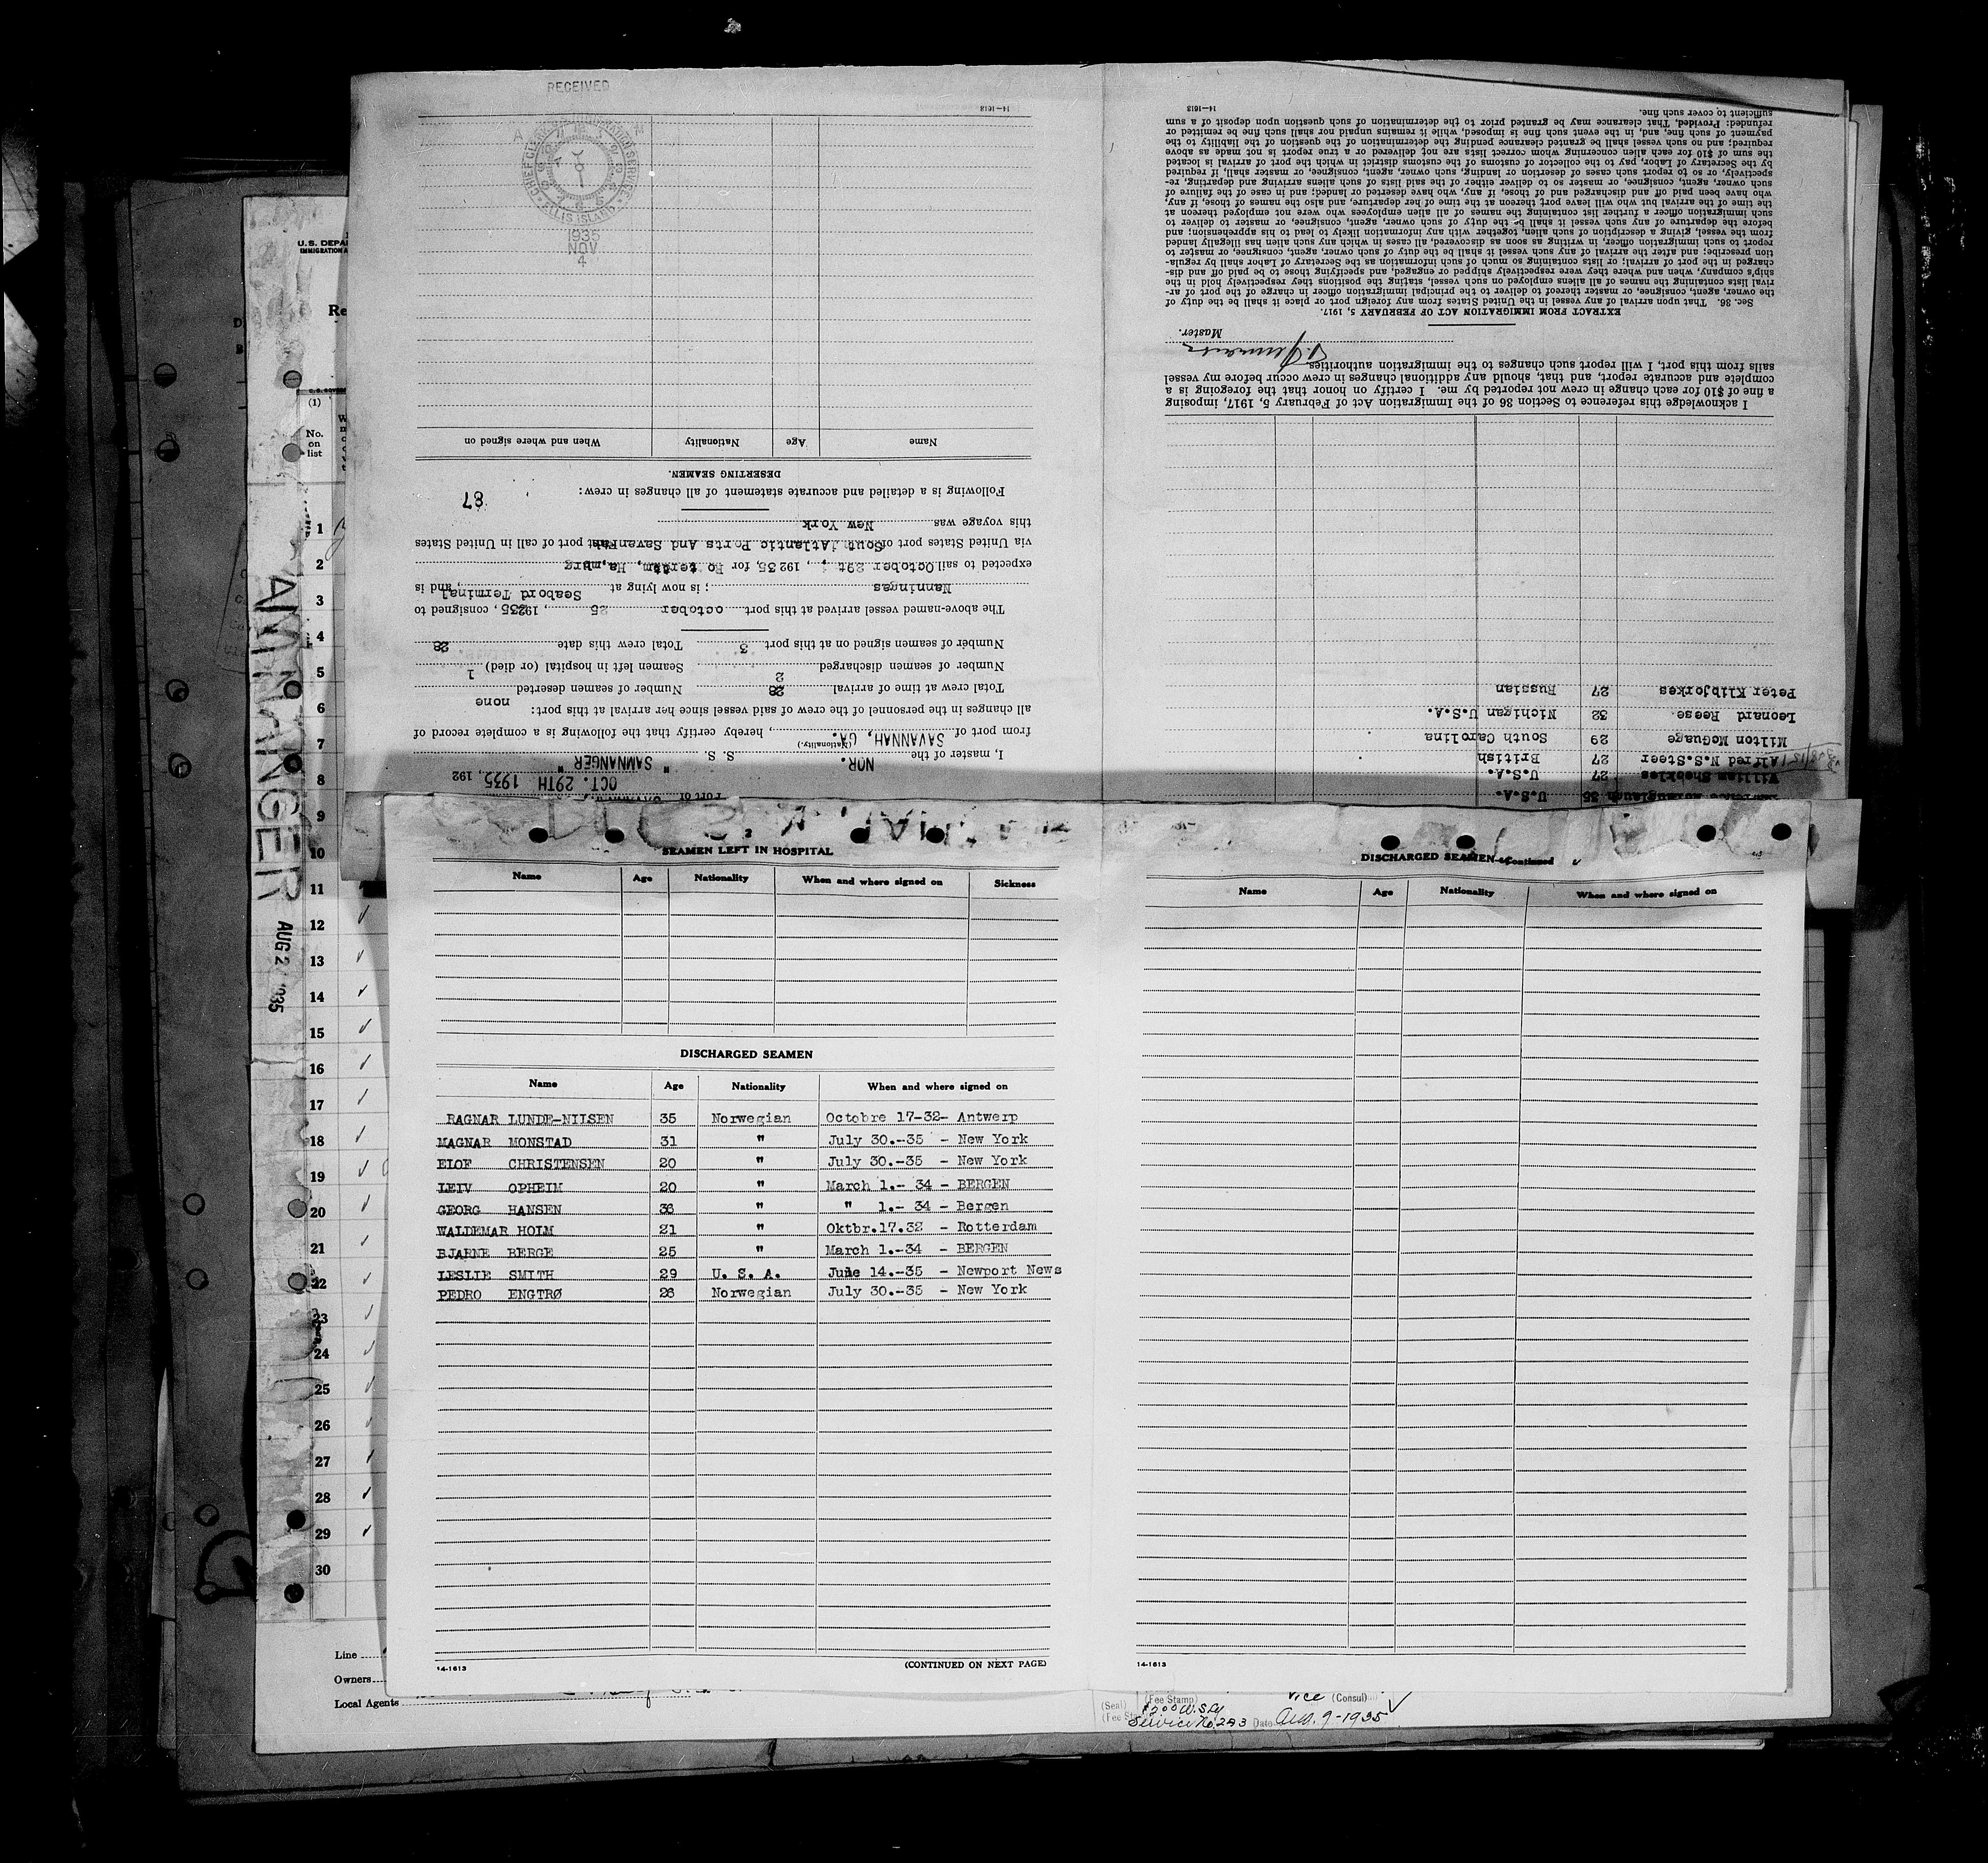 RECEIVED
CHIEF CLERK
ELLIS ISLAND
1935
NOV
4
14-1613
Name Age Nationality When and where signed on
DESERTING SEAMEN.
Following is a detailed and accurate statement of all changes in crew:
87
this voyage was New York
via United States port of South Atlantic Ports And Savannah at port of call in United States
expected to sail October 29t, 19235, for Ro terdam, Ha,mburg
Nanninges ; is now lying at Seabord Terminal, and is
The above-named vessel arrived at this port october 25, 19235, consigned to
Number of seamen signed on at this port 3 Total crew this date 28
Number of seamen discharged 2 Seamen left in hospital (or died) 1
Total crew at time of arrival 28 Number of seamen deserted none
all changes in the personnel of the crew of said vessel since her arrival at this port:
from port of SAVANNAH, GA., hereby certify that the following is a complete record of
I, master of the NOR. (Nationality.) S. S. " SAMNANGER "
OCT. 29TH 1935, 192
Port of
14-1613
sufficient to cover such fine.
refunded: Provided, That clearance may be granted prior to the determination of such question upon deposit of a sum
payment of such fine, and, in the event such fine is imposed, while it remains unpaid nor shall such fine be remitted or
required; and no such vessel shall be granted clearance pending the determination of the question of the liability to the
the sum of $10 for each alien concerning whom correct lists are not delivered or a true report is not made as above
by the Secretary of Labor, pay to the collector of customs of the customs district in which the port of arrival is located
spectively, or so to report such cases of desertion or landing, such owner, agent, consignee, or master shall, if required
such owner, agent, consignee, or master so to deliver either of the said lists of such aliens arriving and departing, re-
who have been paid off and discharged and of those, if any, who have deserted or landed; and in case of the failure of
the time of the arrival but who will leave port thereon at the time of her departure, and also the names of those, if any,
such immigration officer a further list containing the names of all alien employees who were not employed thereon at
before the departure of any such vessel it shall be the duty of such owner, agent, consignee, or master to deliver to
from the vessel, giving a description of such alien, together with any information likely to lead to his apprehension; and
report to such immigration officer, in writing as soon as discovered, all cases in which any such alien has illegally landed
tion prescribe; and after the arrival of any such vessel it shall be the duty of such owner, agent, consignee, or master to
charged in the port of arrival; or lists containing so much of such information as the Secretary of Labor shall by regula-
ship's company, when and where they were respectively shipped or engaged, and specifying those to be paid off and dis-
rival lists containing the names of all aliens employed on such vessel, stating the positions they respectively hold in the
the owner, agent, consignee, or master thereof to deliver to the principal immigration officer in charge of the port of ar-
Sec. 36. That upon arrival of any vessel in the United States from any foreign port or place it shall be the duty of
EXTRACT FROM IMMIGRATION ACT OF FEBRUARY 5, 1917.
Master.
sails from this port, I will report such changes to the immigration authorities.
complete and accurate report, and that, should any additional changes in crew occur before my vessel
a fine of $10 for each change in crew not reported by me. I certify on honor that the foregoing is a
I acknowledge this reference to Section 36 of the Immigration Act of February 5, 1917, imposing
Peter Klibjorkes 27 Russian
Leonard Reese 32 Michigan U.S.A.
Milton McGuage 29 South Carolina
Alfred N.S.Steer 27 British
William Sheckles 27 U.S.A.
35 U.S.A.
U.S. DEPA
IMMIGRATION
Re
(1)
No.
on
list
1
2
3
4
5
6
7
8
9
10
11
12
13
14
15
16
17
18
19
20
21
22
23
24
25
26
27
28
29
30
AMNANGER AUG 2 1935
Line
Owners
Local Agents
2
SEAMEN LEFT IN HOSPITAL
Name Age Nationality When and where signed on Sickness
DISCHARGED SEAMEN
Name Age Nationality When and where signed on
RAGNAR LUNDE-NILSEN 35 Norwegian Octobre 17-32- Antwerp
MAGNAR MONSTAD 31 " July 30.-35 - New York
ELOF CHRISTENSEN 20 " July 30.-35 - New York
LEIV OPHEIM 20 " March 1.- 34 - BERGEN
GEORG HANSEN 36 " " 1.- 34 - Bergen
WALDEMAR HOLM 21 " Oktbr.17.32 - Rotterdam
BJARNE BERGE 25 " March 1.-34 - BERGEN
LESLIE SMITH 29 U. S. A. June 14.-35 - Newport News
PEDRO ENGTRØ 26 Norwegian July 30.-35 - New York
14-1613 (CONTINUED ON NEXT PAGE)
DISCHARGED SEAMEN—Continued
Name Age Nationality When and where signed on
14-1613
(Seal) (Fee Stamp) Vice (Consul)
(Fee St $200 U.S.G
Service No 293 Date Aug. 9-1935